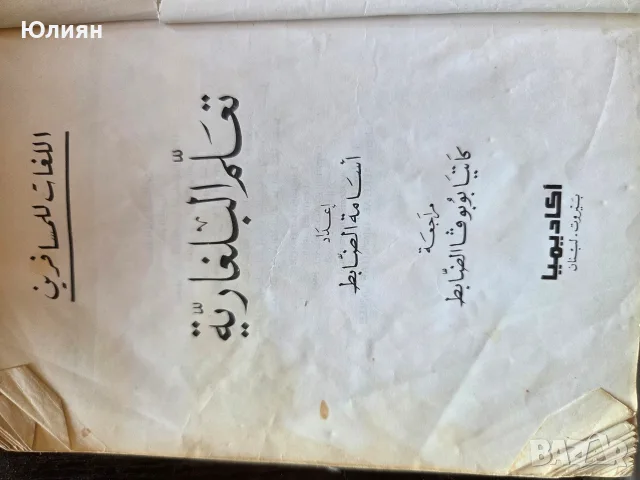 Юлиян
اللغات للمسافرين
تعلّم البلغاريّة
إعداد
أسامة الضّابط
مراجعة
كاتيا بوبوڤا الضّابط
أكاديميا
بيروت، لبنان
BAZAR